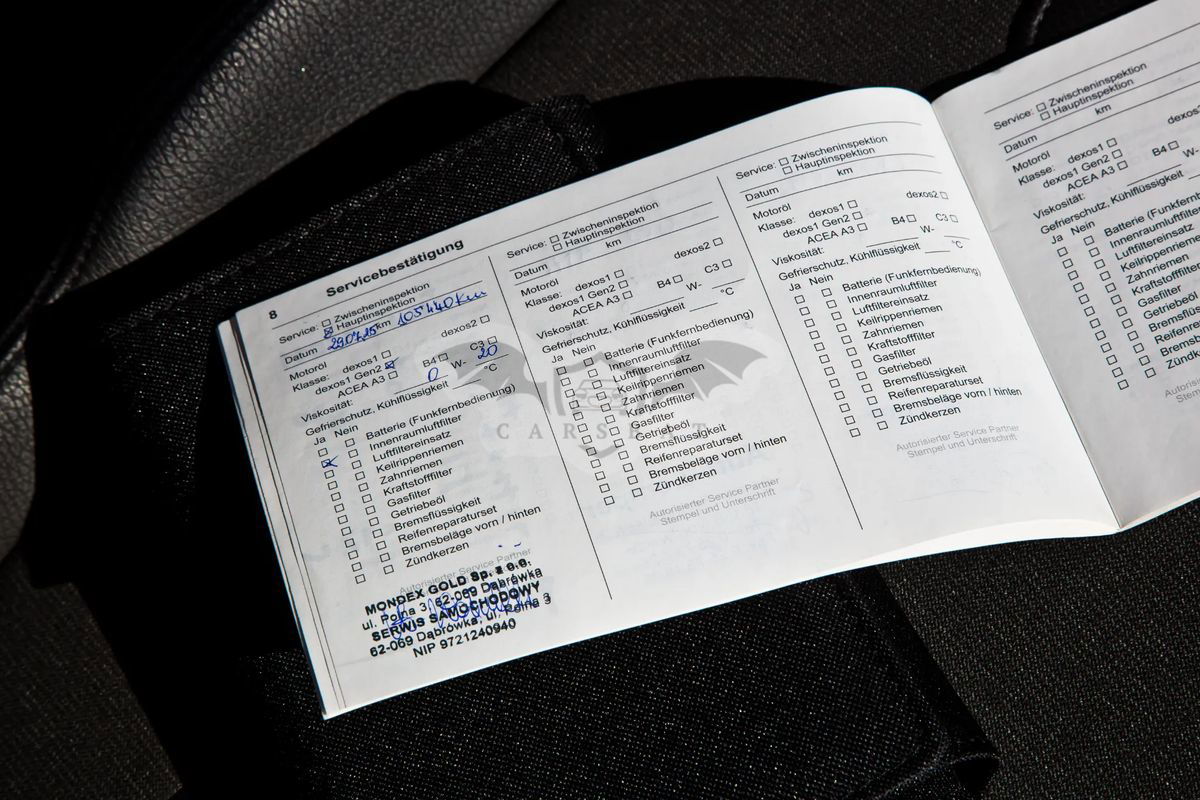 8
Servicebestätigung
Service: Zwischeninspektion
Hauptinspektion
Datum 29.07.25 km 105440 km
Motoröl
Klasse: dexos1 dexos2
dexos1 Gen2
ACEA A3 B4 C3
Viskosität: 0 W- 20
Gefrierschutz, Kühlflüssigkeit °C
Ja Nein
Batterie (Funkfernbedienung)
Innenraumluftfilter
Luftfiltereinsatz
Keilrippenriemen
Zahnriemen
Kraftstofffilter
Gasfilter
Getriebeöl
Bremsflüssigkeit
Reifenreparaturset
Bremsbeläge vorn / hinten
Zündkerzen
Autorisierter Service Partner
MONDEX GOLD Sp. z o.o.
ul. Polna 3, 62-069 Dąbrówka
SERWIS SAMOCHODOWY
62-069 Dąbrówka, ul. Polna 3
NIP 9721240940
Service: Zwischeninspektion
Hauptinspektion
Datum km
Motoröl
Klasse: dexos1 dexos2
dexos1 Gen2
ACEA A3 B4 C3
Viskosität: W-
Gefrierschutz, Kühlflüssigkeit °C
Ja Nein
Batterie (Funkfernbedienung)
Innenraumluftfilter
Luftfiltereinsatz
Keilrippenriemen
Zahnriemen
Kraftstofffilter
Gasfilter
Getriebeöl
Bremsflüssigkeit
Reifenreparaturset
Bremsbeläge vorn / hinten
Zündkerzen
Autorisierter Service Partner
Stempel und Unterschrift
Service: Zwischeninspektion
Hauptinspektion
Datum km
Motoröl
Klasse: dexos1 dexos2
dexos1 Gen2
ACEA A3 B4 C3
Viskosität: W-
Gefrierschutz, Kühlflüssigkeit °C
Ja Nein
Batterie (Funkfernbedienung)
Innenraumluftfilter
Luftfiltereinsatz
Keilrippenriemen
Zahnriemen
Kraftstofffilter
Gasfilter
Getriebeöl
Bremsflüssigkeit
Reifenreparaturset
Bremsbeläge vorn / hinten
Zündkerzen
Autorisierter Service Partner
Stempel und Unterschrift
Service: Zwischeninspektion
Hauptinspektion
Datum km
Motoröl
Klasse: dexos1
dexos1 Gen2
ACEA A3 B4
Viskosität: W-
Gefrierschutz, Kühlflüssigkeit
Ja Nein
Batterie (Funkfernb
Innenraumluftfilt
Luftfiltereinsatz
Keilrippenriem
Zahnriemen
Kraftstofffilte
Gasfilter
Getriebeöl
Bremsflüss
Reifenrep
Bremsb
Zündk